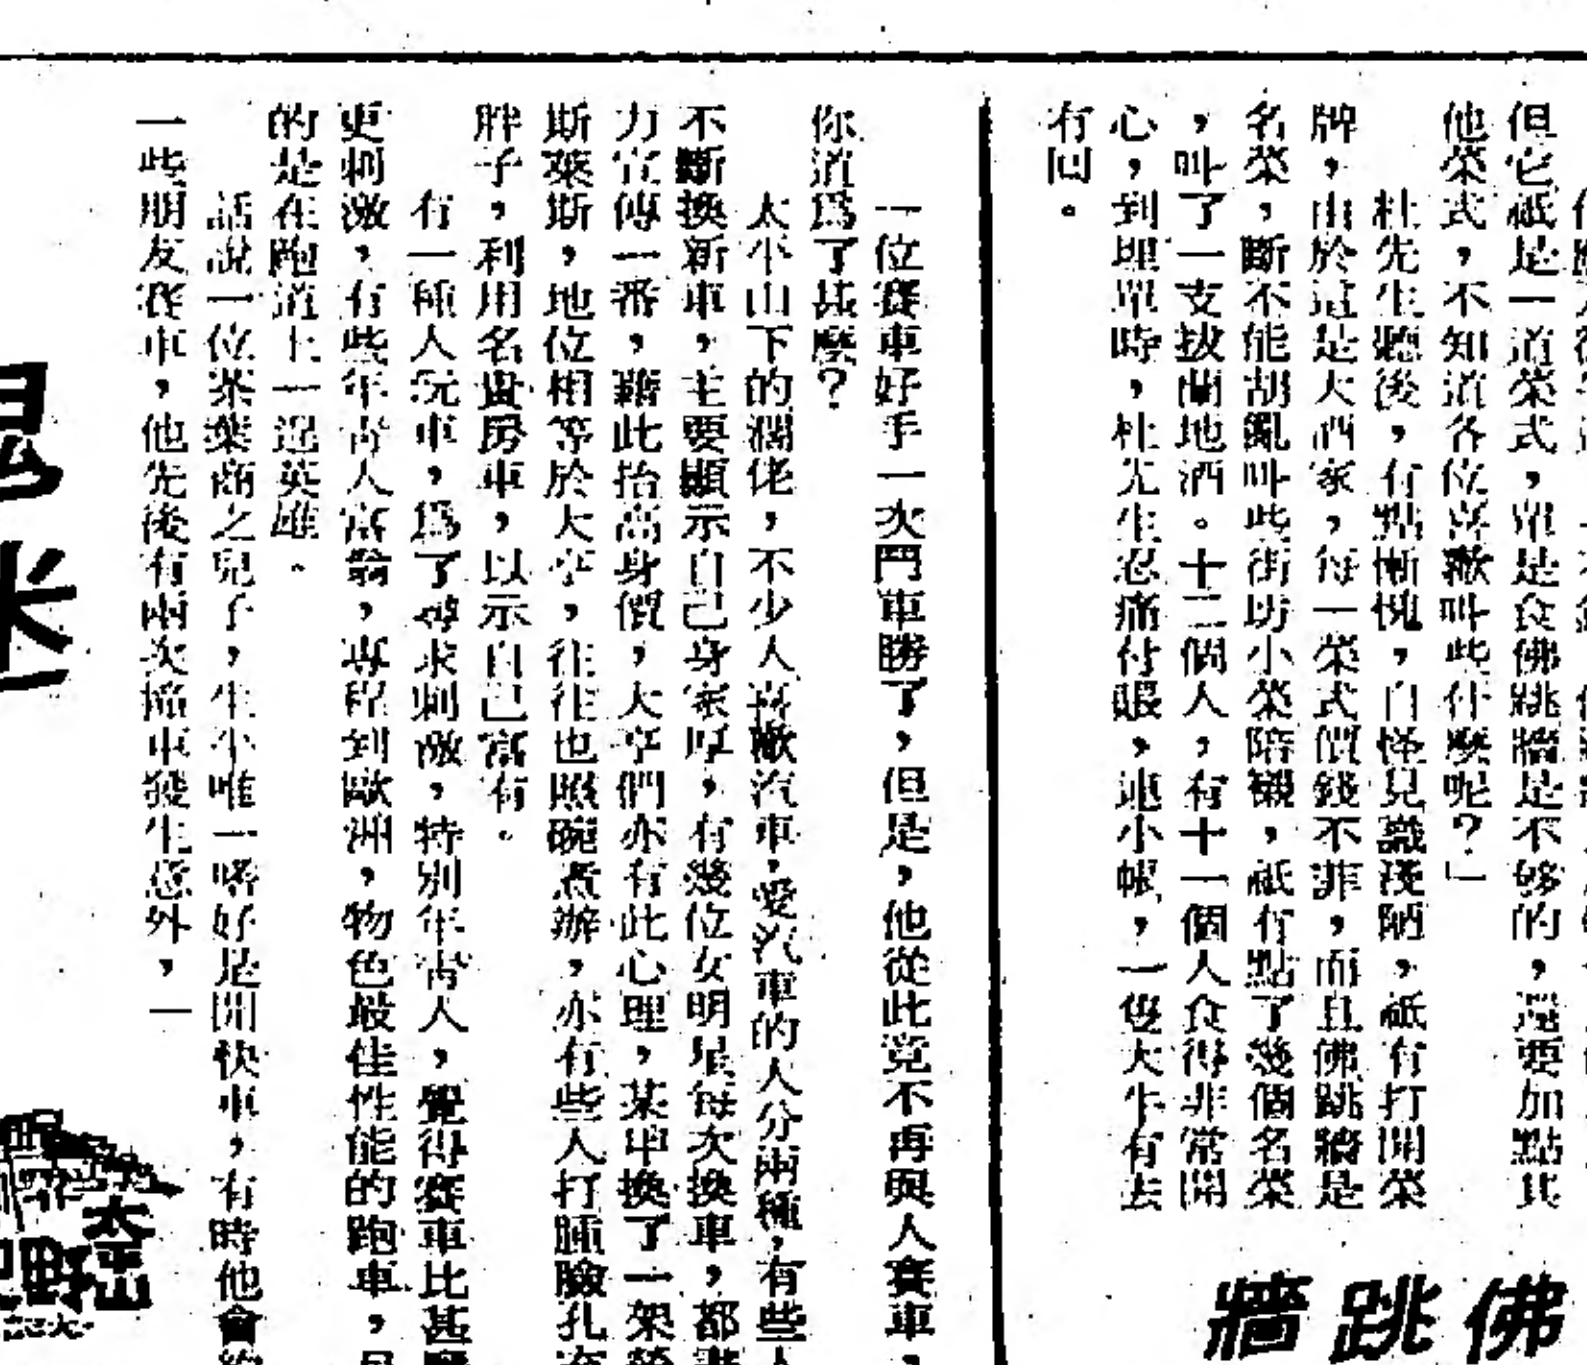 但它祇是一道菜式，單是食佛跳牆是不够的，還要加點其
他菜式，不知道各位喜歡叫些什麼呢？」
杜先生聽後，有點慚愧，自怪見識淺陋，祇有打開菜
牌，由於這是大酒家，每一菜式價錢不菲，而且佛跳牆是
名菜，斷不能胡亂叫些街坊小菜陪襯，祇有點了幾個名菜
，叫了一支拔蘭地酒。十二個人，有十一個人食得非常開
心，到埋單時，杜先生忍痛付賬，連小帳，一隻大牛有去
有回。
佛跳牆
一位賽車好手一次鬥車勝了，但是，他從此竟不再與人賽車，
你道爲了甚麼？
太平山下的濶佬，不少人喜歡汽車，愛汽車的人分兩種，有些人
不斷換新車，主要顯示自己身家厚，有幾位女明星每次換車，都
力宣傳一番，藉此抬高身價，大亨們亦有此心理，某甲換了一架
斯萊斯，地位相等於大亨，往往也照碗煮辦，亦有些人打腫臉孔充
胖子，利用名貴房車，以示自己富有。
有一種人玩車，爲了尋求刺激，特別年青人，覺得賽車比甚麼
更刺激，有些年青人富翁，專程到歐洲，物色最佳性能的跑車，
的是在跑道上一逞英雄。
話說一位茶葉商之兒子，生平唯一嗜好是開快車，有時他會約
一些朋友賽車，他先後有兩次撞車發生意外，一
太平山